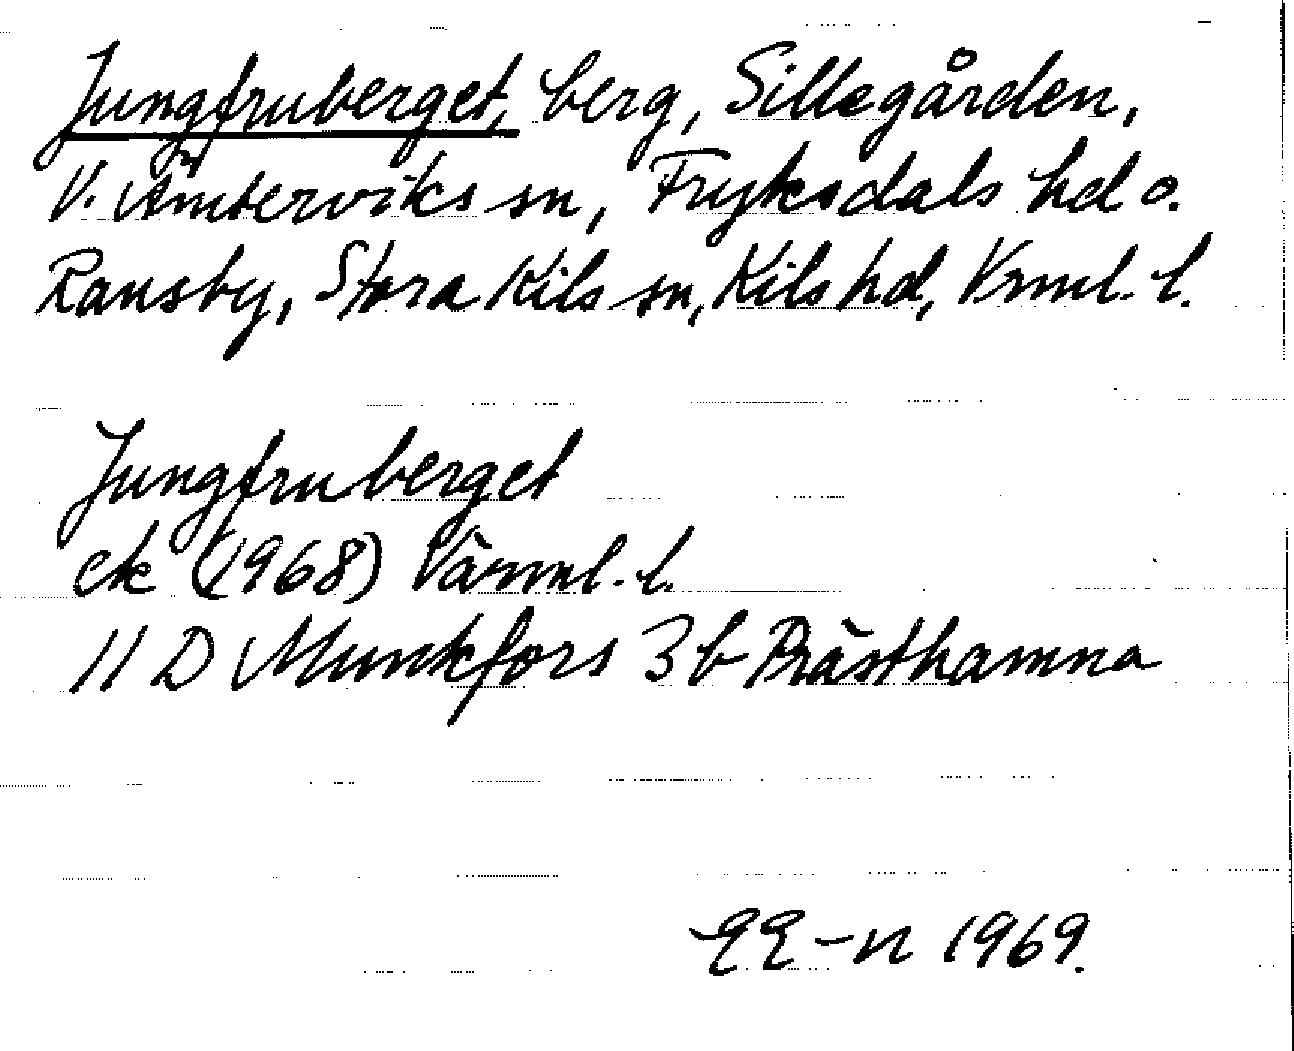 Jungfruberget, berg, Sillegården,
V. Ämterviks sn, Fryksdals hd o.
Ransby, Stora Kils sn, Kils hd, Vrml. l.
Jungfruberget
ek (1968) Värml. l.
11 D Munkfors 3 b Prästhamna
1969.